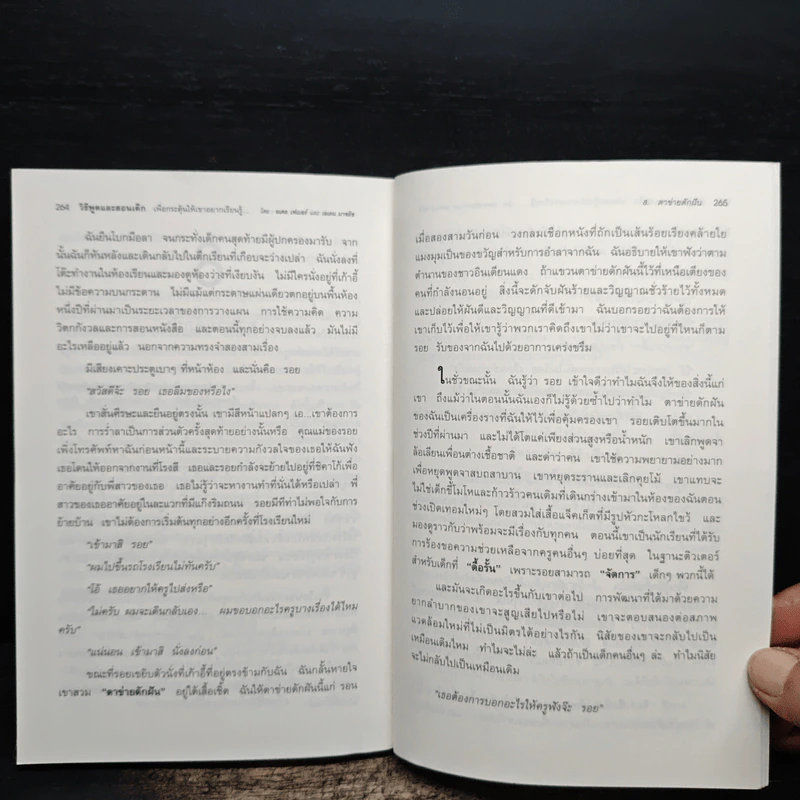 264 วิธีพูดและสอนเด็ก เพื่อกระตุ้นให้เขาอยากเรียนรู้... โดย : อเดล เฟเบอร์ และ เอเลน มาซลิช
ฉันยืนโบกมือลา จนกระทั่งเด็กคนสุดท้ายมีผู้ปกครองมารับ จาก
นั้นฉันก็หันหลังและเดินกลับไปในตึกเรียนที่เกือบจะว่างเปล่า ฉันนั่งลงที่
โต๊ะทำงานในห้องเรียนและมองดูห้องว่างที่เงียบงัน ไม่มีใครนั่งอยู่ที่เก้าอี้
ไม่มีข้อความบนกระดาน ไม่มีแม้แต่กระดาษแผ่นเดียวตกอยู่บนพื้นห้อง
หนึ่งปีที่ผ่านมาเป็นระยะเวลาของการวางแผน การใช้ความคิด ความ
วิตกกังวลและการสอนหนังสือ และตอนนี้ทุกอย่างจบลงแล้ว มันไม่มี
อะไรเหลืออยู่แล้ว นอกจากความทรงจำสองสามเรื่อง
มีเสียงเคาะประตูเบาๆ ที่หน้าห้อง และนั่นคือ รอย
"สวัสดีจ้ะ รอย เธอลืมของหรือไง"
เขาสั่นศีรษะและยืนอยู่ตรงนั้น เขามีสีหน้าแปลกๆ เอ...เขาต้องการ
อะไร การร่ำลาเป็นการส่วนตัวครั้งสุดท้ายอย่างนั้นหรือ คุณแม่ของรอย
เพิ่งโทรศัพท์หาฉันก่อนหน้านี้และระบายความกังวลใจของเธอให้ฉันฟัง
เธอโดนให้ออกจากงานที่โรงสี เธอและรอยกำลังจะย้ายไปอยู่ที่ชิคาโก้เพื่อ
อาศัยอยู่กับพี่สาวของเธอ เธอไม่รู้ว่าจะหางานทำที่นั่นได้หรือเปล่า พี่
สาวของเธออาศัยอยู่ในละแวกที่มีแก๊งริมถนน รอยมีทีท่าไม่พอใจกับการ
ย้ายบ้าน เขาไม่ต้องการเริ่มต้นทุกอย่างอีกครั้งที่โรงเรียนใหม่
"เข้ามาสิ รอย"
"ผมไปขึ้นรถโรงเรียนไม่ทันครับ"
"โอ้ เธออยากให้ครูไปส่งหรือ"
"ไม่ครับ ผมจะเดินกลับเอง... ผมขอบอกอะไรครูบางเรื่องได้ไหม
ครับ"
"แน่นอน เข้ามาสิ นั่งลงก่อน"
ขณะที่รอยเขยิบตัวนั่งที่เก้าอี้ที่อยู่ตรงข้ามกับฉัน ฉันกลั้นหายใจ
เขาสวม "ตาข่ายดักฝัน" อยู่ใต้เสื้อเชิ้ต ฉันให้ตาข่ายดักฝันนี้แก่ รอน
8. ตาข่ายดักฝัน 265
เมื่อสองสามวันก่อน วงกลมเชือกหนังที่ถักเป็นเส้นร้อยเรียงคล้ายใย
แมงมุมเป็นของขวัญสำหรับการอำลาจากฉัน ฉันอธิบายให้เขาฟังว่าตาม
ตำนานของชาวอินเดียนแดง ถ้าแขวนตาข่ายดักฝันนี้ไว้ที่เหนือเตียงของ
คนที่กำลังนอนอยู่ สิ่งนี้จะดักจับฝันร้ายและวิญญาณชั่วร้ายไว้ทั้งหมด
และปล่อยให้ฝันดีและวิญญาณที่ดีเข้ามา ฉันบอกรอยว่าฉันต้องการให้
เขาเก็บไว้เพื่อให้เขารู้ว่าพวกเราคิดถึงเขาไม่ว่าเขาจะไปอยู่ที่ไหนก็ตาม
รอย รับของจากฉันไปด้วยอาการเคร่งขรึม
ในชั่วขณะนั้น ฉันรู้ว่า รอย เข้าใจดีว่าทำไมฉันจึงให้ของสิ่งนี้แก่
เขา ถึงแม้ว่าในตอนนั้นฉันเองก็ไม่รู้ด้วยซ้ำไปว่าทำไม ตาข่ายดักฝัน
ของฉันเป็นเครื่องรางที่ฉันให้ไว้เพื่อคุ้มครองเขา รอยเติบโตขึ้นมากใน
ช่วงปีที่ผ่านมา และไม่ได้โตแค่เพียงส่วนสูงหรือน้ำหนัก เขาเลิกพูดจา
ล้อเลียนเพื่อนต่างเชื้อชาติ และด่าว่าคน เขาใช้ความพยายามอย่างมาก
เพื่อหยุดพูดจาสบถสาบาน เขาหยุดระรานและเลิกคุยโม้ เขาแทบจะ
ไม่ใช่เด็กขี้โมโหและก้าวร้าวคนเดิมที่เดินกร่างเข้ามาในห้องของฉันตอน
ช่วงเปิดเทอมใหม่ๆ โดยสวมใส่เสื้อแจ็คเก็ตที่มีรูปหัวกะโหลกไขว้ และ
มองดูราวกับว่าพร้อมจะมีเรื่องกับทุกคน ตอนนี้เขาเป็นนักเรียนที่ได้รับ
การร้องขอความช่วยเหลือจากครูคนอื่นๆ บ่อยที่สุด ในฐานะติวเตอร์
สำหรับเด็กที่ "ดื้อรั้น" เพราะรอยสามารถ "จัดการ" เด็กๆ พวกนี้ได้
และมันจะเกิดอะไรขึ้นกับเขาต่อไป การพัฒนาที่ได้มาด้วยความ
ยากลำบากของเขาจะสูญเสียไปหรือไม่ เขาจะตอบสนองต่อสภาพ
แวดล้อมใหม่ที่ไม่เป็นมิตรได้อย่างไรกัน นิสัยของเขาจะกลับไปเป็น
เหมือนเดิมไหม ทำไมจะไม่ล่ะ แล้วถ้าเป็นเด็กคนอื่นๆ ล่ะ ทำไมนิสัย
จะไม่กลับไปเป็นเหมือนเดิม
"เธอต้องการบอกอะไรให้ครูฟังจ๊ะ รอย"